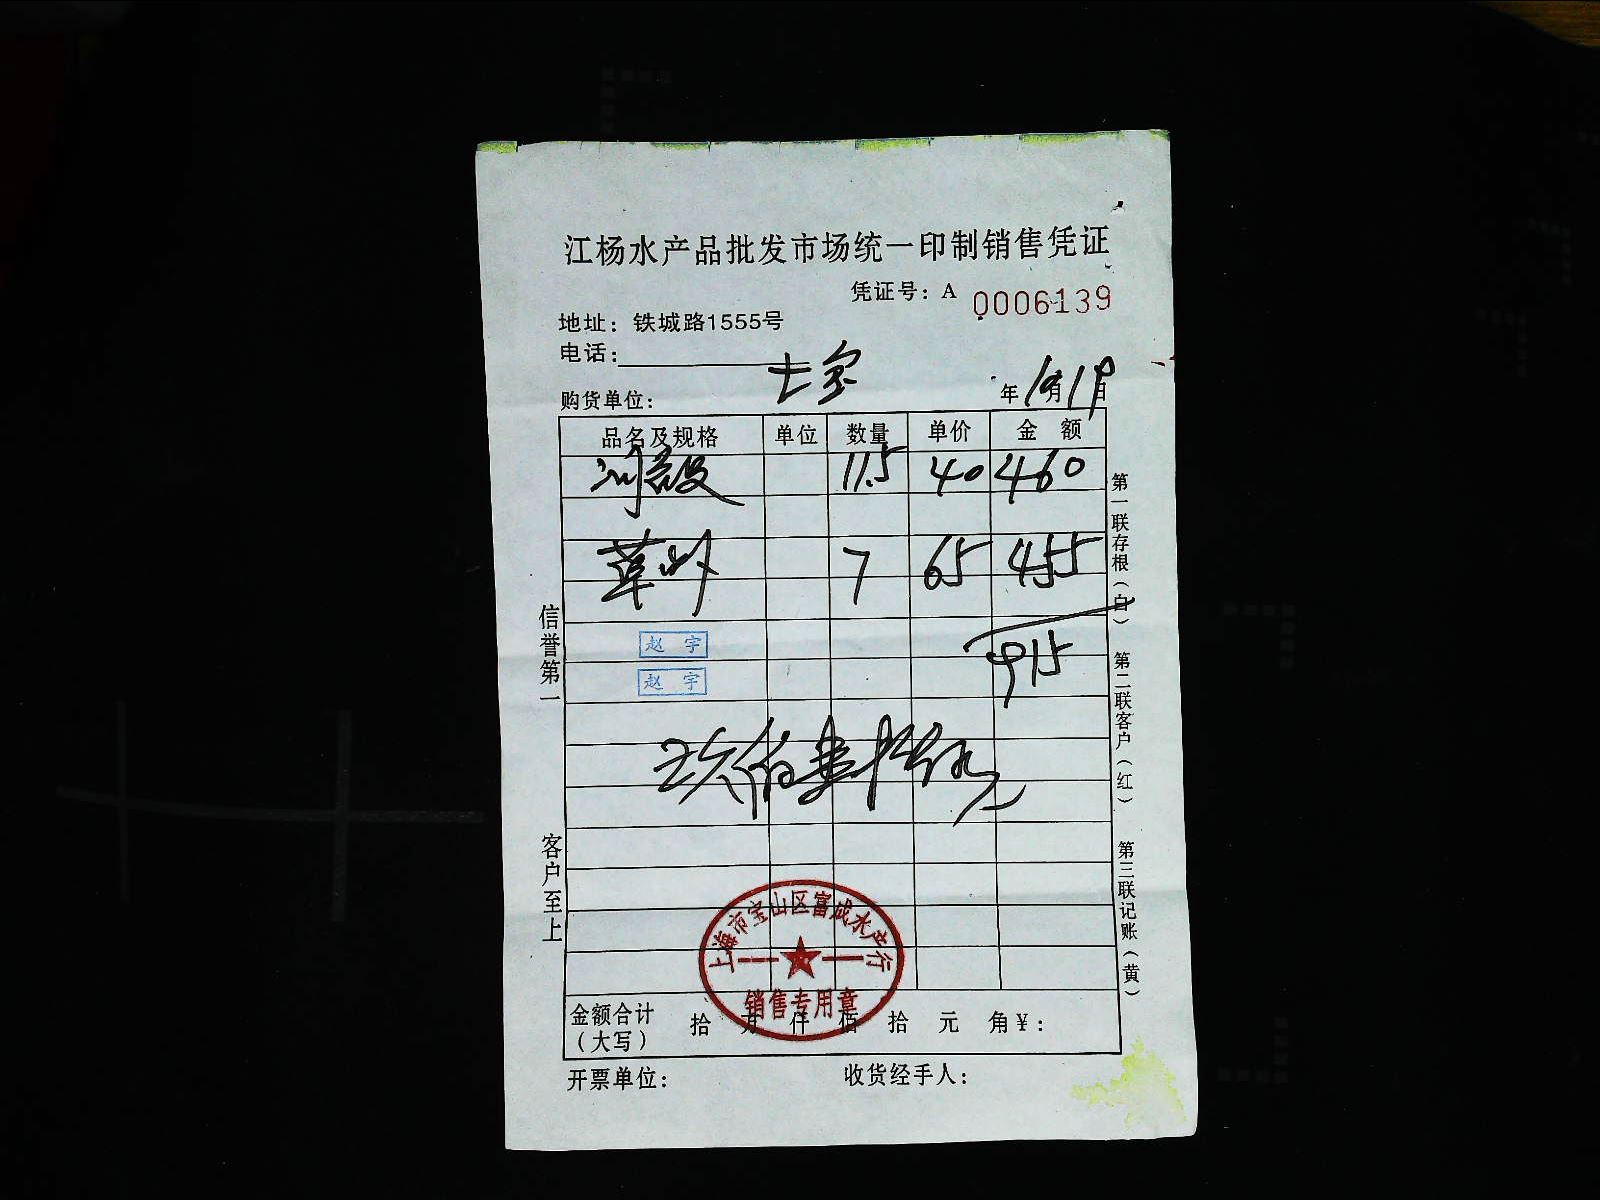 江杨水产品批发市场统一印制销售凭证
凭证号：A 0006139
地址：铁城路1555号
电话：
七宝
购货单位： 年10月19日
品名及规格 单位 数量 单价 金 额
11.5 40 460
草虾 7 65 455
赵 宇
915
赵 宇
玖佰壹拾伍元
上海市宝山区富成水产行
销售专用章
金额合计
（大写）
拾 万 仟 佰 拾 元 角￥：
开票单位： 收货经手人：
信誉第一
客户至上
第一联存根（白）
第二联客户（红）
第三联记账（黄）